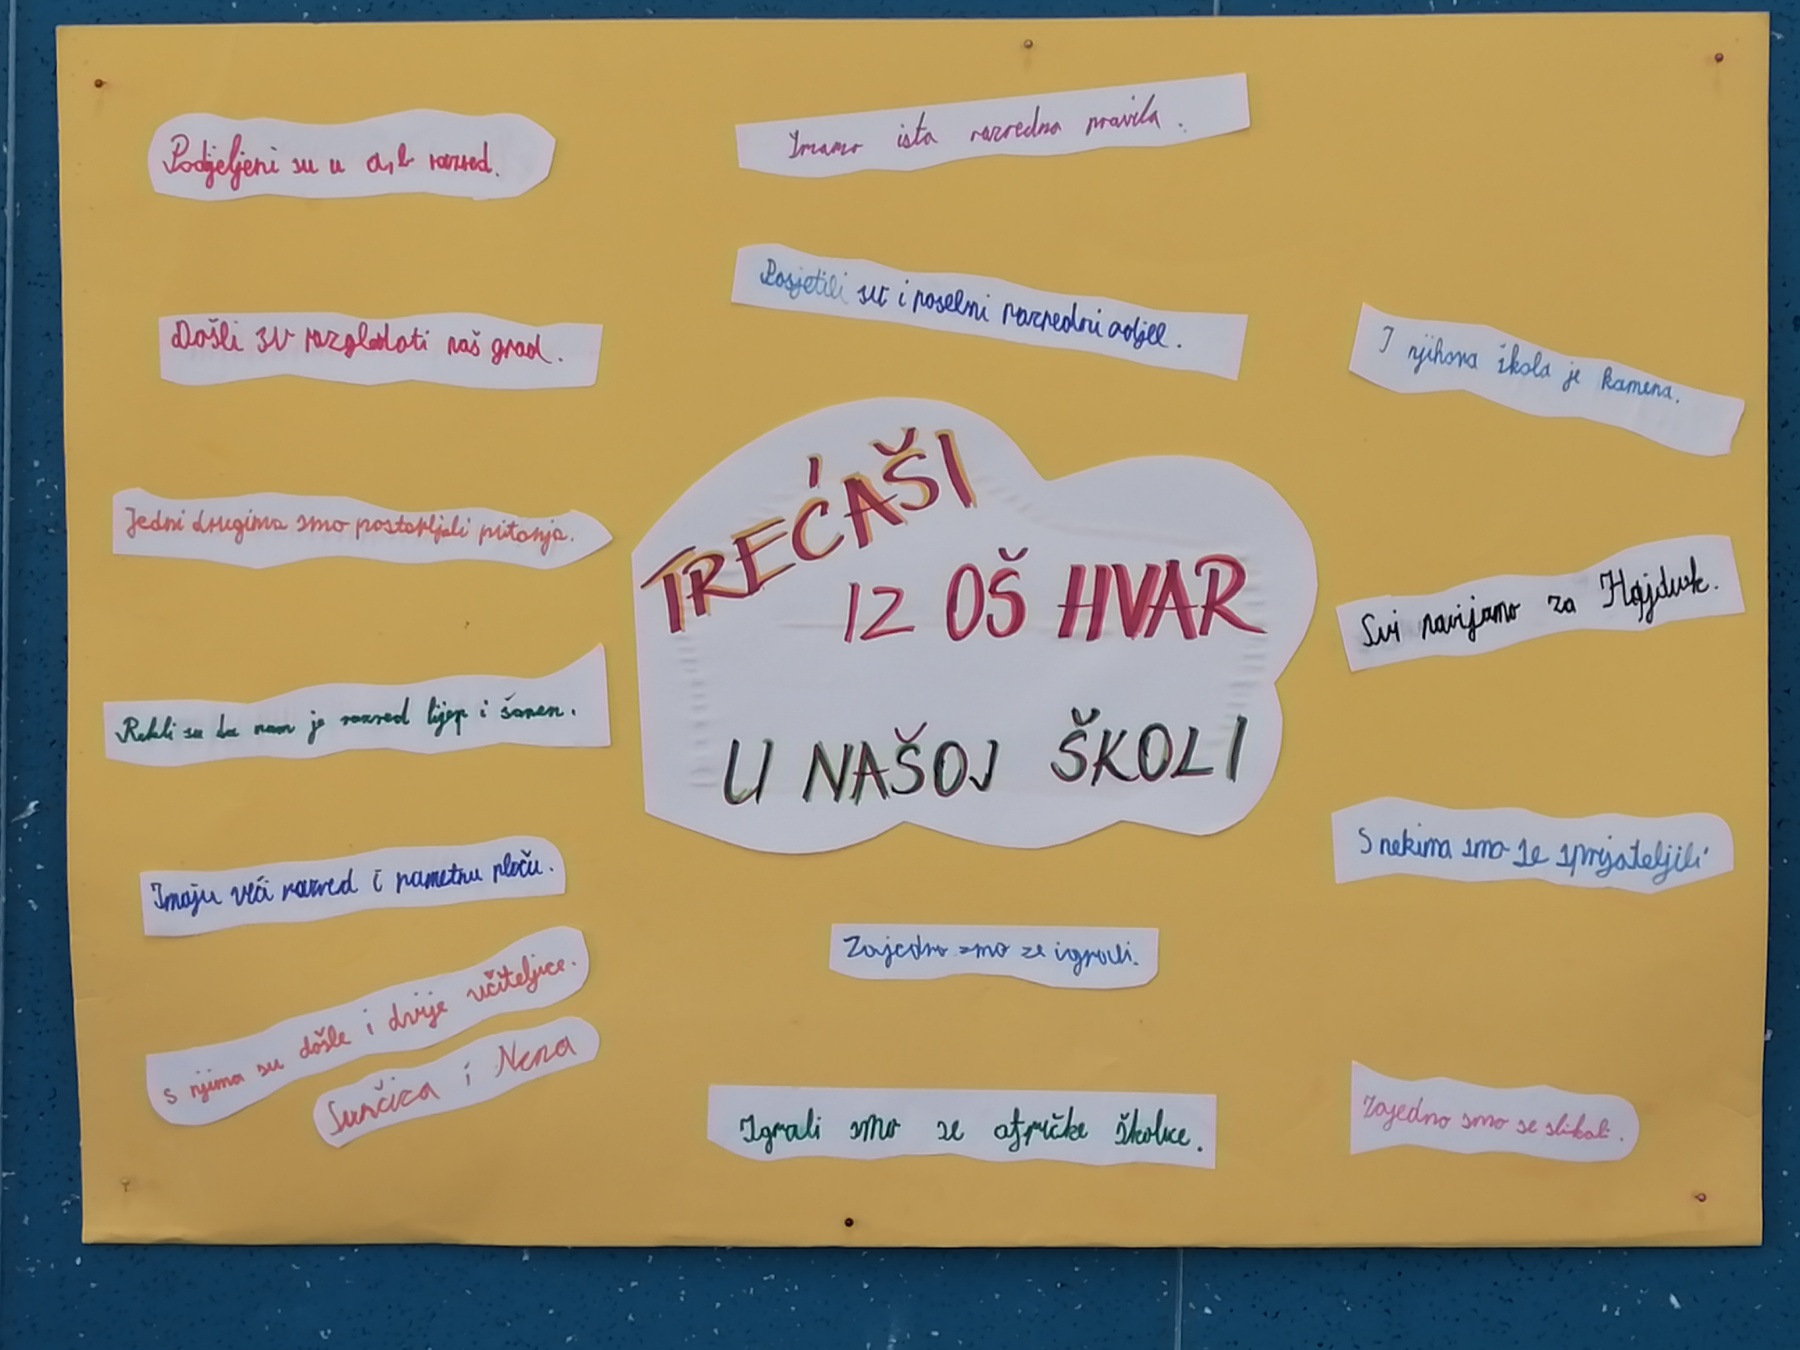 Podjeljeni su u a, b razred.
Došli su razgledati naš grad.
Jedni drugima smo postavljali pitanja.
Rekli su da nam je razred lijep i šaren.
Imaju veći razred i pametnu ploču.
S njima su došle i dvije učiteljice.
Sunčica i Nena
Imamo ista razredna pravila.
Posjetili su i posebni razredni odjel.
TREĆAŠI
IZ OŠ HVAR
U NAŠOJ ŠKOLI
Zajedno smo se igrali.
Igrali smo se afričke školice.
I njihova škola je kamena.
Svi navijamo za Hajduk.
S nekima smo se sprijateljili.
Zajedno smo se slikali.